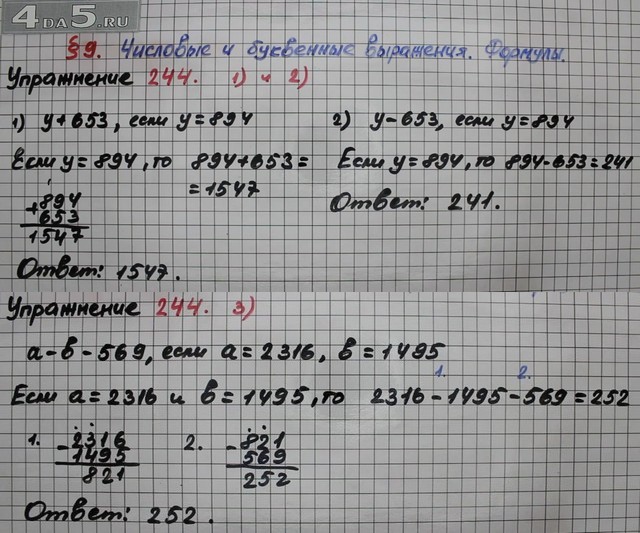 4DA5.RU
§9. Числовые и буквенные выражения. Формулы.
Упражнение 244. 1) и 2)
1) y+653, если y=894
Если y=894, то 894+653=
=1547
+894
653
1547
Ответ: 1547.
2) y-653, если y=894
Если y=894, то 894-653=241
Ответ: 241.
Упражнение 244. 3)
a-b-569, если a=2316, b=1495
1. 2.
Если a=2316 и b=1495, то 2316-1495-569=252
1. -2316
1495
821
2. -821
569
252
Ответ: 252.